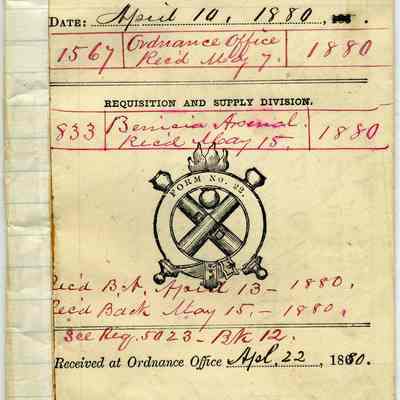 DATE: April 10, 1880, 186 .
1567 Ordnance Office 1880
Recd May 7.
REQUISITION AND SUPPLY DIVISION.
833 Benicia Arsenal 1880
Recd May 15.
FORM No. 22.
Rec'd B.A. April 13 - 1880.
Rec'd Back May 15, - 1880.
See Reg. 5023 - Bk 12.
Received at Ordnance Office Apl. 22, 1880.